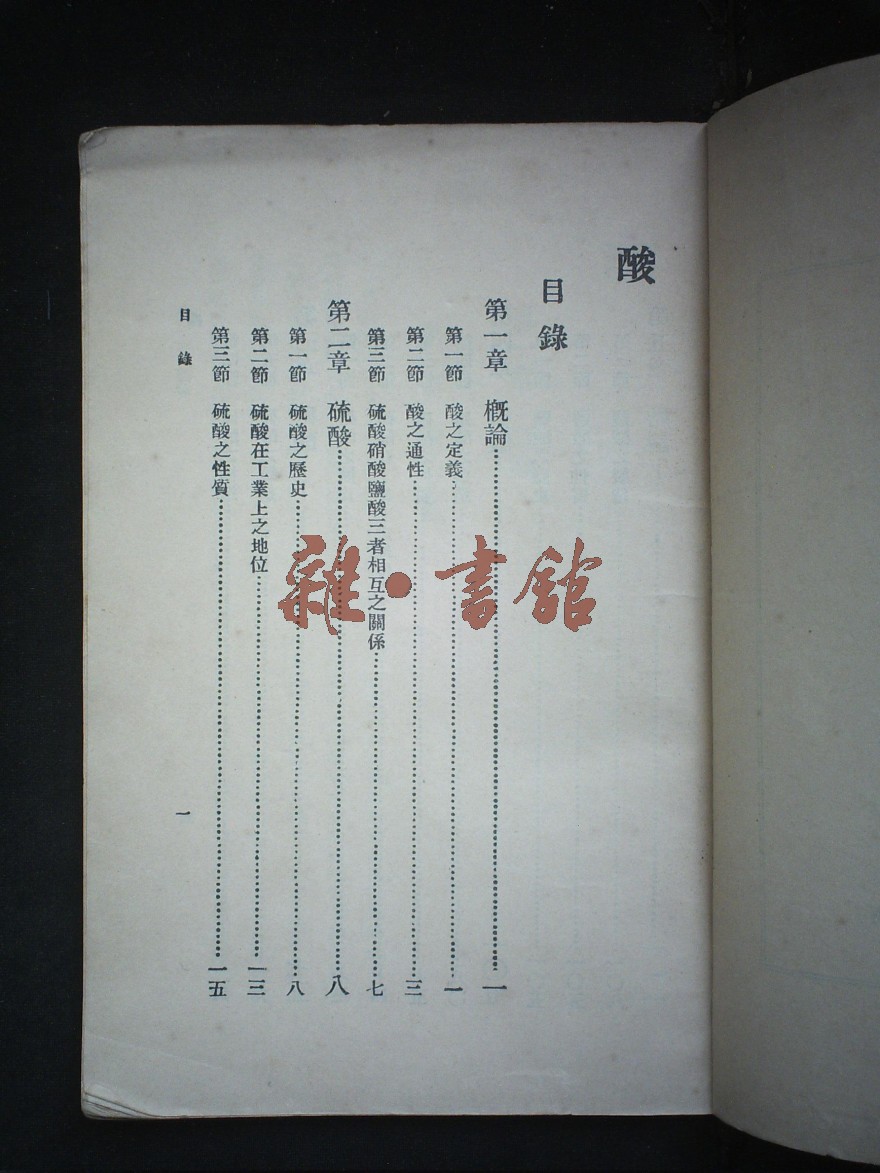 酸
目錄
第一章 概論……一
第一節 酸之定義……一
第二節 酸之通性……三
第三節 硫酸硝酸鹽酸三者相互之關係……七
第二章 硫酸……八
第一節 硫酸之歷史……八
第二節 硫酸在工業上之地位……一三
第三節 硫酸之性質……一五
目錄 一
雜·書館